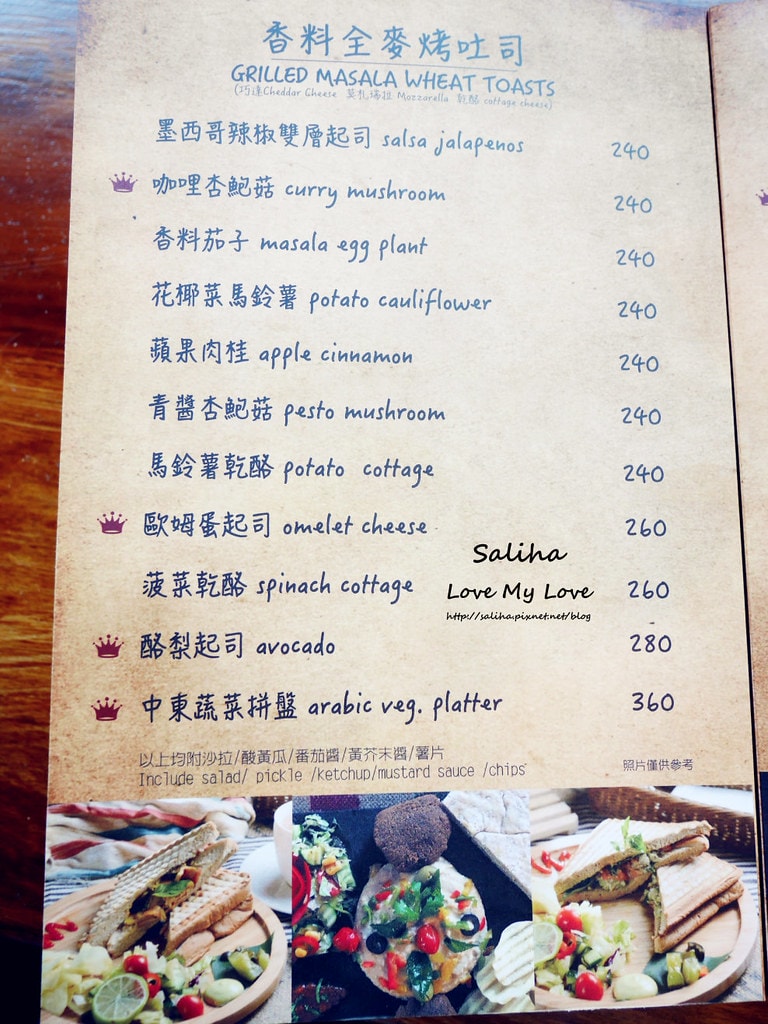 香料全麥烤吐司
GRILLED MASALA WHEAT TOASTS
(巧達Cheddar Cheese 莫札瑞拉 Mozzarella 乾酪 cottage cheese)
墨西哥辣椒雙層起司 salsa jalapenos 240
咖哩杏鮑菇 curry mushroom 240
香料茄子 masala egg plant 240
花椰菜馬鈴薯 potato cauliflower 240
蘋果肉桂 apple cinnamon 240
青醬杏鮑菇 pesto mushroom 240
馬鈴薯乾酪 potato cottage 240
歐姆蛋起司 omelet cheese 260
菠菜乾酪 spinach cottage 260
酪梨起司 avocado 280
中東蔬菜拼盤 arabic veg. platter 360
Saliha
Love My Love
http://saliha.pixnet.net/blog
以上均附沙拉/酸黃瓜/番茄醬/黃芥末醬/薯片
Include salad/ pickle /ketchup/mustard sauce /chips
照片僅供參考